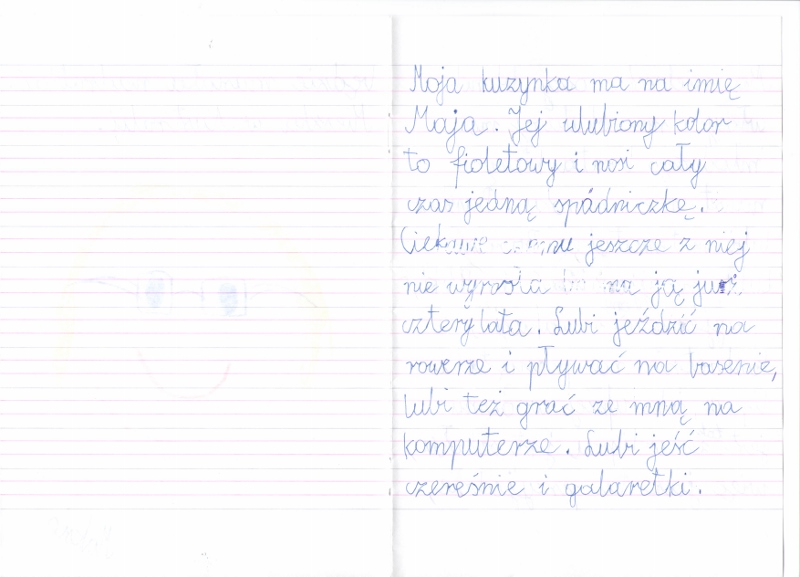 Moja kuzynka ma na imię
Maja. Jej ulubiony kolor
to fioletowy i nosi cały
czas jedną spódniczkę.
Ciekawe czemu jeszcze z niej
nie wyrosła ma ją już
cztery lata. Lubi jeździć na
rowerze i pływać na basenie,
lubi też grać ze mną na
komputerze. Lubi jeść
czereśnie i galaretki.